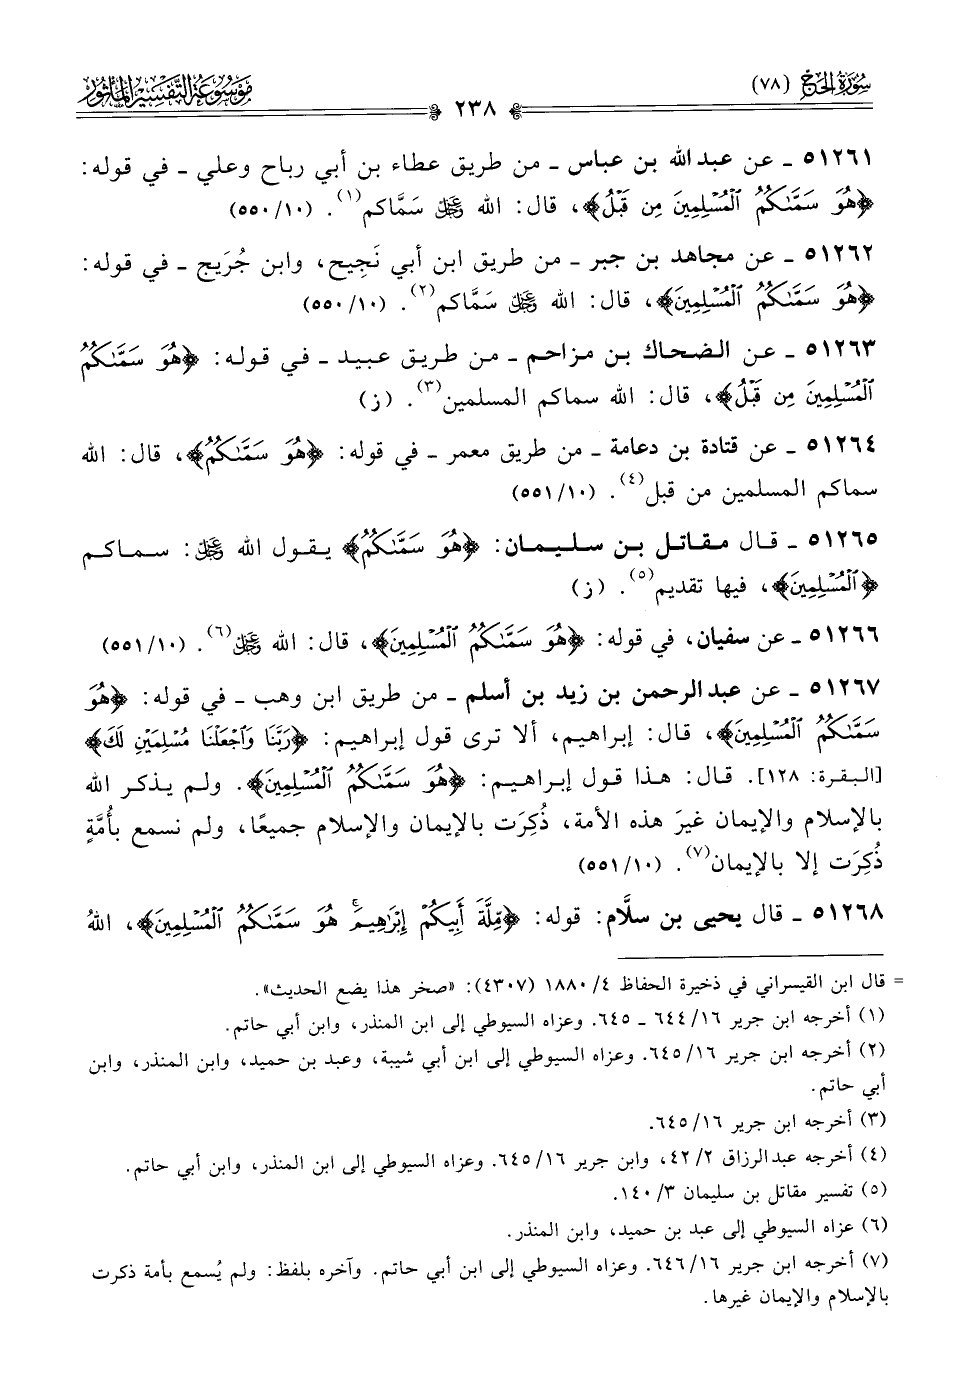 سُورَةُ الحَجّ (٧٨)
٢٣٨
مَوْسُوعَة التَّفْسِيْر المَأثُور
٥١٢٦١ ـ عن عبد الله بن عباس ـ من طريق عطاء بن أبي رباح وعلي ـ في قوله:
﴿هُوَ سَمَّىٰكُمُ ٱلْمُسْلِمِينَ مِن قَبْلُ﴾، قال: الله ﷿ سَمَّاكم(١). (١٠/ ٥٥٠)
٥١٢٦٢ ـ عن مجاهد بن جبر ـ من طريق ابن أبي نَجيح، وابن جُرَيج ـ في قوله:
﴿هُوَ سَمَّىٰكُمُ ٱلْمُسْلِمِينَ﴾، قال: الله ﷿ سَمَّاكم(٢). (١٠/ ٥٥٠)
٥١٢٦٣ ـ عن الضحاك بن مزاحم ـ من طريق عبيد ـ في قوله: ﴿هُوَ سَمَّىٰكُمُ
ٱلْمُسْلِمِينَ مِن قَبْلُ﴾، قال: الله سماكم المسلمين(٣). (ز)
٥١٢٦٤ ـ عن قتادة بن دعامة ـ من طريق معمر ـ في قوله: ﴿هُوَ سَمَّىٰكُمُ﴾، قال: الله
سماكم المسلمين من قبل(٤). (١٠/ ٥٥١)
٥١٢٦٥ ـ قال مقاتل بن سليمان: ﴿هُوَ سَمَّىٰكُمُ﴾ يقول الله ﷿: سماكم
﴿ٱلْمُسْلِمِينَ﴾، فيها تقديم(٥). (ز)
٥١٢٦٦ ـ عن سفيان، في قوله: ﴿هُوَ سَمَّىٰكُمُ ٱلْمُسْلِمِينَ﴾، قال: الله ﷿(٦). (١٠/ ٥٥١)
٥١٢٦٧ ـ عن عبد الرحمن بن زيد بن أسلم ـ من طريق ابن وهب ـ في قوله: ﴿هُوَ
سَمَّىٰكُمُ ٱلْمُسْلِمِينَ﴾، قال: إبراهيم، ألا ترى قول إبراهيم: ﴿رَبَّنَا وَٱجْعَلْنَا مُسْلِمَيْنِ لَكَ﴾
[البقرة: ١٢٨]. قال: هذا قول إبراهيم: ﴿هُوَ سَمَّىٰكُمُ ٱلْمُسْلِمِينَ﴾. ولم يذكر الله
بالإسلام والإيمان غيرَ هذه الأمة، ذُكِرَت بالإيمان والإسلام جميعًا، ولم نسمع بأُمَّةٍ
ذُكِرَت إلا بالإيمان(٧). (١٠/ ٥٥١)
٥١٢٦٨ ـ قال يحيى بن سلَّام: قوله: ﴿مِّلَّةَ أَبِيكُمْ إِبْرَٰهِيمَ ۚ هُوَ سَمَّىٰكُمُ ٱلْمُسْلِمِينَ﴾، اللهُ
= قال ابن القيسراني في ذخيرة الحفاظ ٤/ ١٨٨٠ (٤٣٠٧): «صخر هذا يضع الحديث».
(١) أخرجه ابن جرير ١٦/ ٦٤٤ ـ ٦٤٥. وعزاه السيوطي إلى ابن المنذر، وابن أبي حاتم.
(٢) أخرجه ابن جرير ١٦/ ٦٤٥. وعزاه السيوطي إلى ابن أبي شيبة، وعبد بن حميد، وابن المنذر، وابن
أبي حاتم.
(٣) أخرجه ابن جرير ١٦/ ٦٤٥.
(٤) أخرجه عبد الرزاق ٢/ ٤٢، وابن جرير ١٦/ ٦٤٥. وعزاه السيوطي إلى ابن المنذر، وابن أبي حاتم.
(٥) تفسير مقاتل بن سليمان ٣/ ١٤٠.
(٦) عزاه السيوطي إلى عبد بن حميد، وابن المنذر.
(٧) أخرجه ابن جرير ١٦/ ٦٤٦. وعزاه السيوطي إلى ابن أبي حاتم. وآخره بلفظ: ولم يُسمع بأمة ذكرت
بالإسلام والإيمان غيرها.